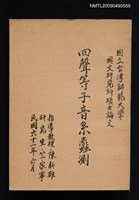 NMTL20090490559
國立台灣師範大學
國文研究所碩士論文
四聲等子音系蠡測
指導教授：陳新雄
研究生：竺家寧
民國六十二年六月